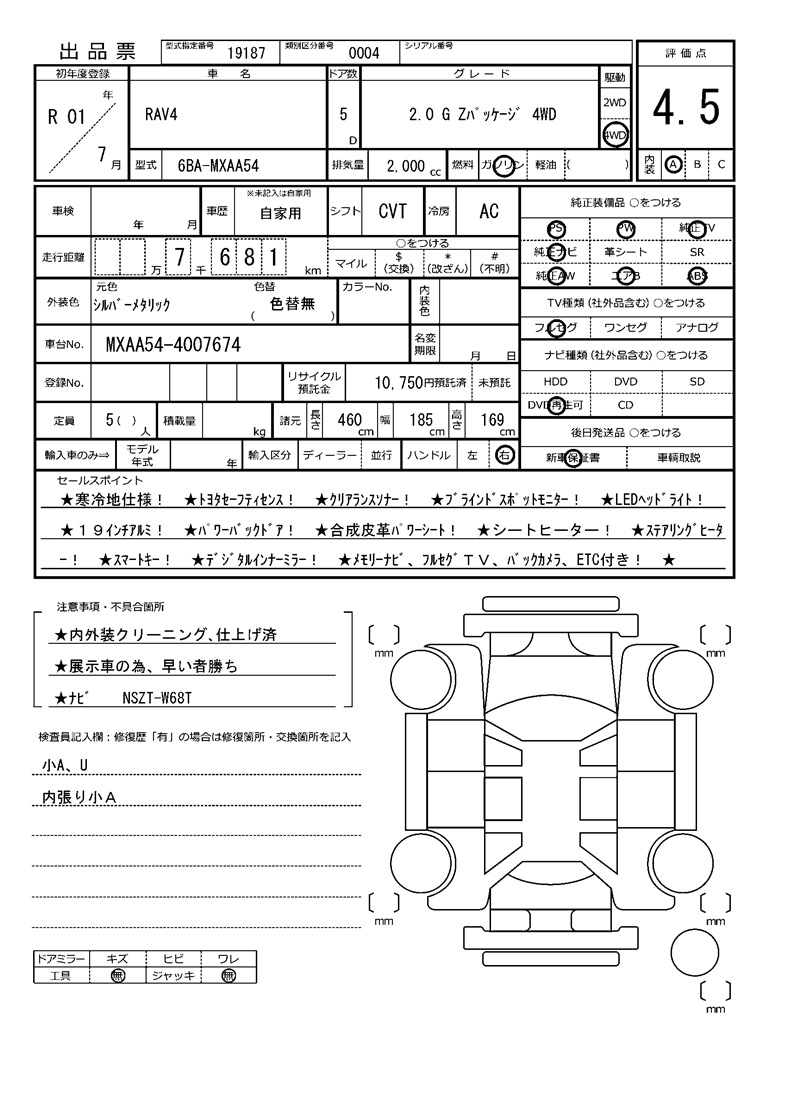 出品票 型式指定番号 19187 類別区分番号 0004 シリアル番号
評価点
4.5
内装 A B C
初年度登録 車名 ドア数 グレード 駆動
R 01 年 7 月 RAV4 5 D 2.0 G Zﾊﾟｯｹｰｼﾞ 4WD 2WD 4WD
型式 6BA-MXAA54 排気量 2,000 cc 燃料 ガソリン 軽油 ( )
車検 年 月 車歴 ※未記入は自家用 自家用 シフト CVT 冷房 AC
走行距離 万 7 千 6 8 1 km ○をつける
マイル $(交換) *(改ざん) #(不明)
外装色 元色 ｼﾙﾊﾞｰﾒﾀﾘｯｸ 色替 ( 色替無 ) カラーNo. 内装色
車台No. MXAA54-4007674 名変期限 月 日
登録No. リサイクル預託金 10,750円預託済 未預託
定員 5( ) 人 積載量 kg 諸元 長さ 460 cm 幅 185 cm 高さ 169 cm
輸入車のみ⇒ モデル年式 年 輸入区分 ディーラー 並行 ハンドル 左 右
純正装備品 ○をつける
PS PW 純正TV
純正ナビ 革シート SR
純正AW エアB ABS
TV種類(社外品含む)○をつける
フルセグ ワンセグ アナログ
ナビ種類(社外品含む)○をつける
HDD DVD SD
DVD再生可 CD
後日発送品 ○をつける
新車保証書 車輌取説
セールスポイント
★寒冷地仕様！ ★ﾄﾖﾀｾｰﾌﾃｨｾﾝｽ！ ★ｸﾘｱﾗﾝｽｿﾅｰ！ ★ﾌﾞﾗｲﾝﾄﾞｽﾎﾟｯﾄﾓﾆﾀｰ！ ★LEDﾍｯﾄﾞﾗｲﾄ！
★１９ｲﾝﾁｱﾙﾐ！ ★ﾊﾟﾜｰﾊﾞｯｸﾄﾞｱ！ ★合成皮革ﾊﾟﾜｰｼｰﾄ！ ★シートヒーター！ ★ｽﾃｱﾘﾝｸﾞﾋｰﾀ
ｰ！ ★ｽﾏｰﾄｷｰ！ ★ﾃﾞｼﾞﾀﾙインナーﾐﾗｰ！ ★ﾒﾓﾘｰﾅﾋﾞ、ﾌﾙｾｸﾞＴＶ、ﾊﾞｯｸｶﾒﾗ、ETC付き！ ★
注意事項・不具合箇所
★内外装クリーニング､仕上げ済
★展示車の為、早い者勝ち
★ﾅﾋﾞ NSZT-W68T
検査員記入欄：修復歴「有」の場合は修復箇所・交換箇所を記入
小A、U
内張り小Ａ
ドアミラー キズ ヒビ ワレ
工具 無 ジャッキ 無
mm
mm
mm
mm
mm